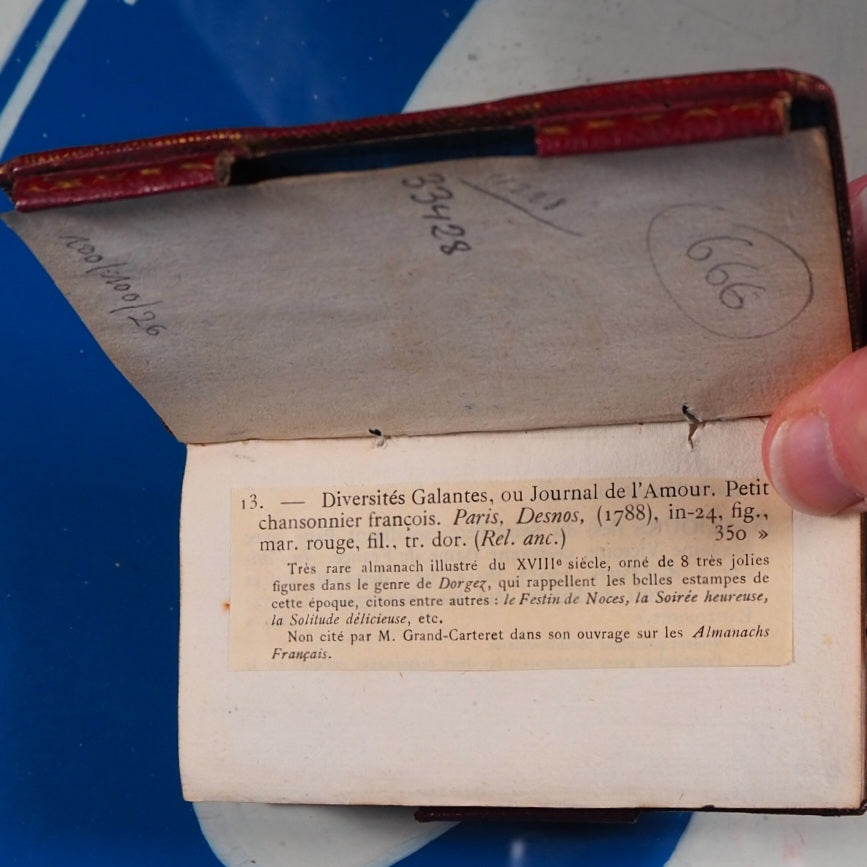 33428
666
100/:100/26
13. — Diversités Galantes, ou Journal de l'Amour. Petit
chansonnier françois. Paris, Desnos, (1788), in-24, fig.,
mar. rouge, fil., tr. dor. (Rel. anc.) 350 »
Très rare almanach illustré du XVIIIe siècle, orné de 8 très jolies
figures dans le genre de Dorgez, qui rappellent les belles estampes de
cette époque, citons entre autres : le Festin de Noces, la Soirée heureuse,
la Solitude délicieuse, etc.
Non cité par M. Grand-Carteret dans son ouvrage sur les Almanachs
Français.